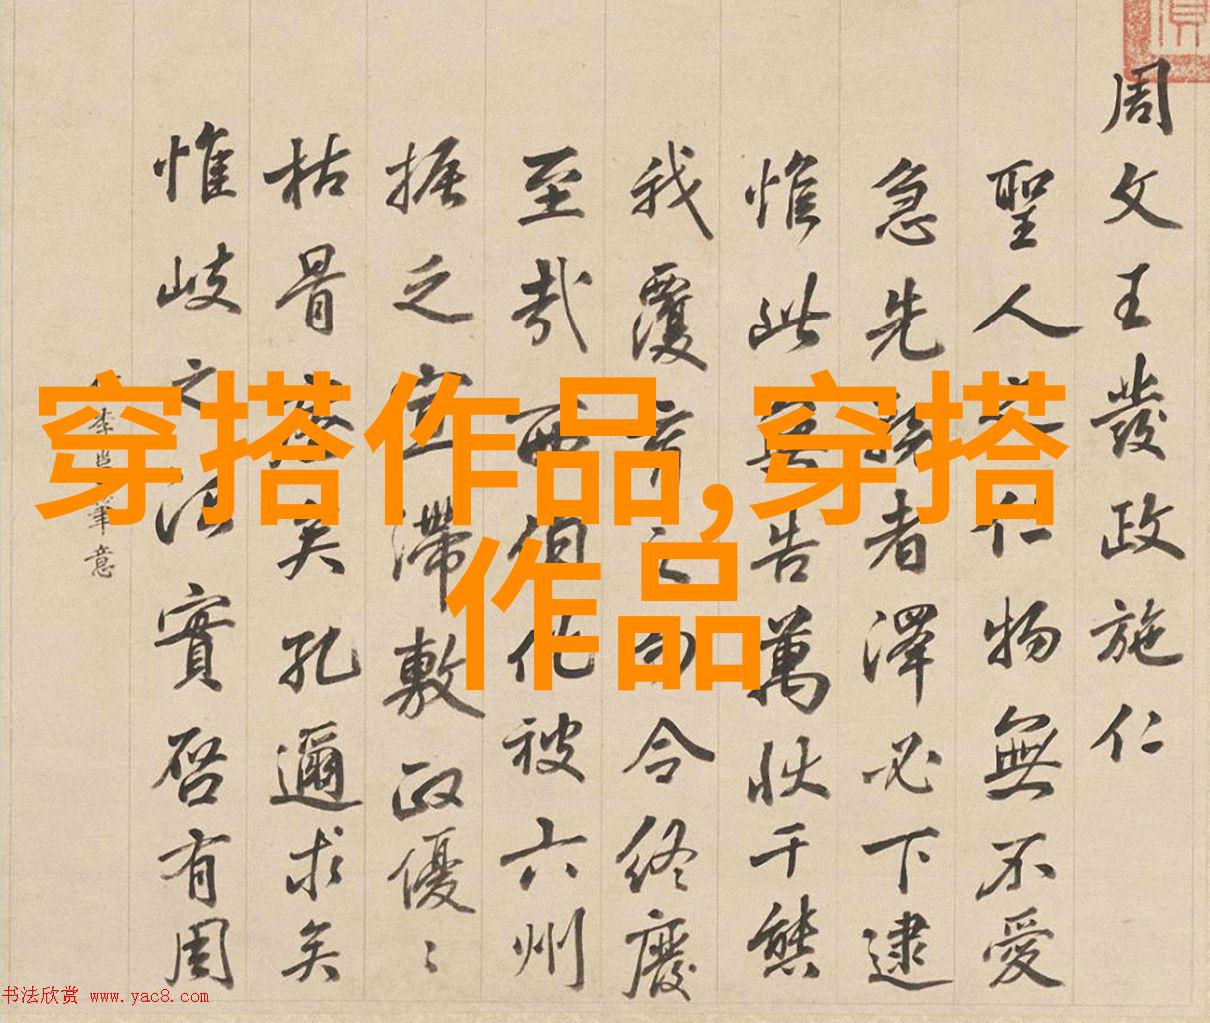 周文王發政施仁
聖人 仁物無不愛
急先 者澤必下逮
惟此 告萬狀千態
我覆 之 令終慶
至哉西伯化被六州
振之 滯敷政優〻
枯骨 矣孔邇求矣
惟岐之 實啓有周
李 筆意
穿搭作品,穿搭
作品
书法欣赏 www.yac8.com